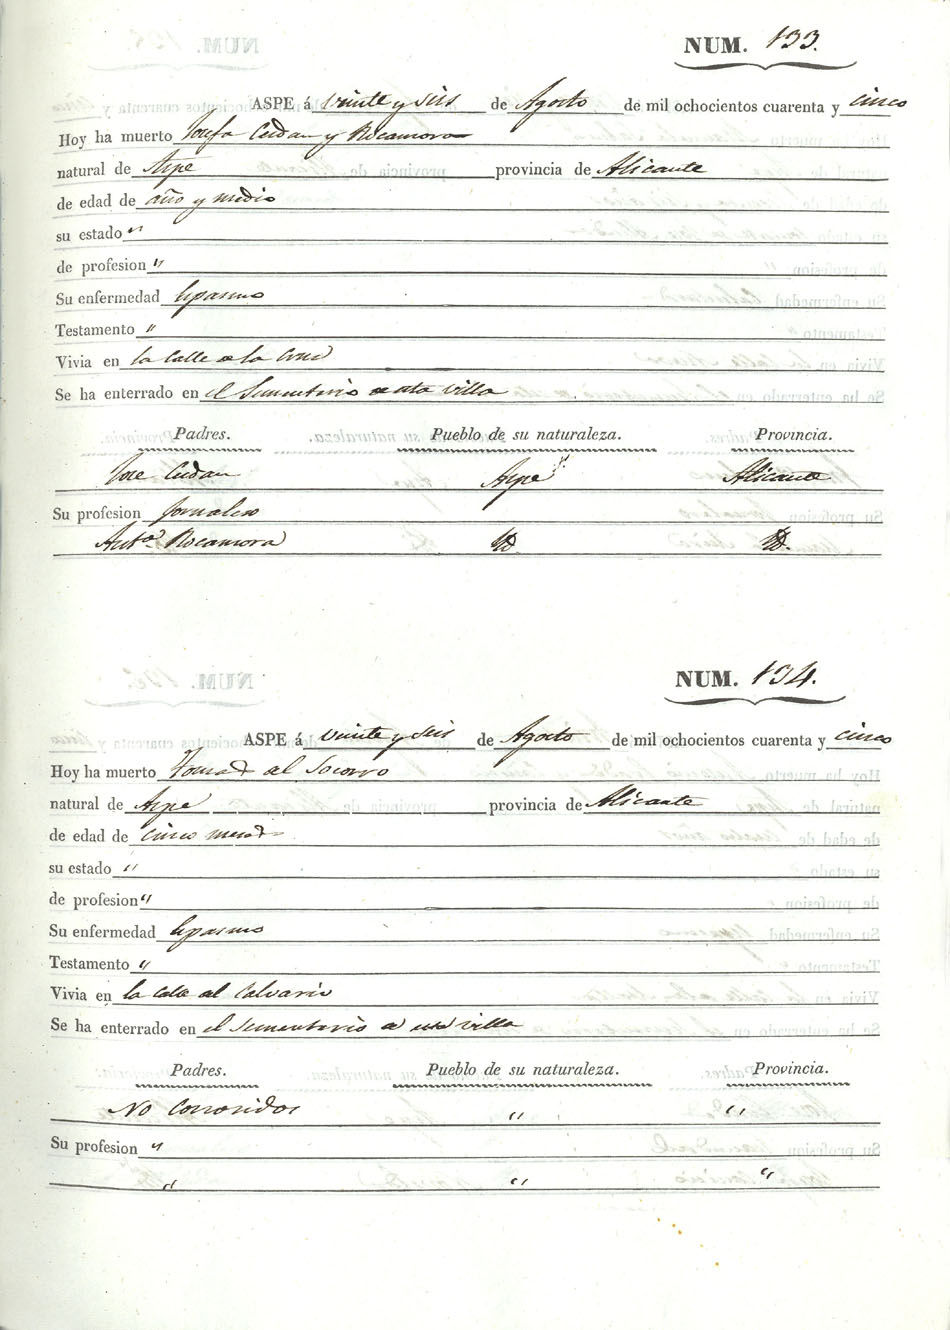 NUM. 133.
ASPE á veinte y seis de Agosto de mil ochocientos cuarenta y cinco
Hoy ha muerto Josefa Cerdan y Rocamora
natural de Aspe provincia de Alicante
de edad de año y medio
su estado "
de profesion "
Su enfermedad Espasmo
Testamento "
Vivia en la Calle de la Cruz
Se ha enterrado en el Sementerio de esta villa
Padres. Pueblo de su naturaleza. Provincia.
Jose Cerdan Aspe Alicante
Su profesion Jornalero
Anta. Rocamora Id. Id.
NUM. 134.
ASPE á veinte y seis de Agosto de mil ochocientos cuarenta y cinco
Hoy ha muerto del Socorro
natural de Aspe provincia de Alicante
de edad de cinco meses
su estado "
de profesion "
Su enfermedad Espasmo
Testamento "
Vivia en la Calle del Calvario
Se ha enterrado en el Sementerio de esta villa
Padres. Pueblo de su naturaleza. Provincia.
No Conosidos " "
Su profesion "
" " "